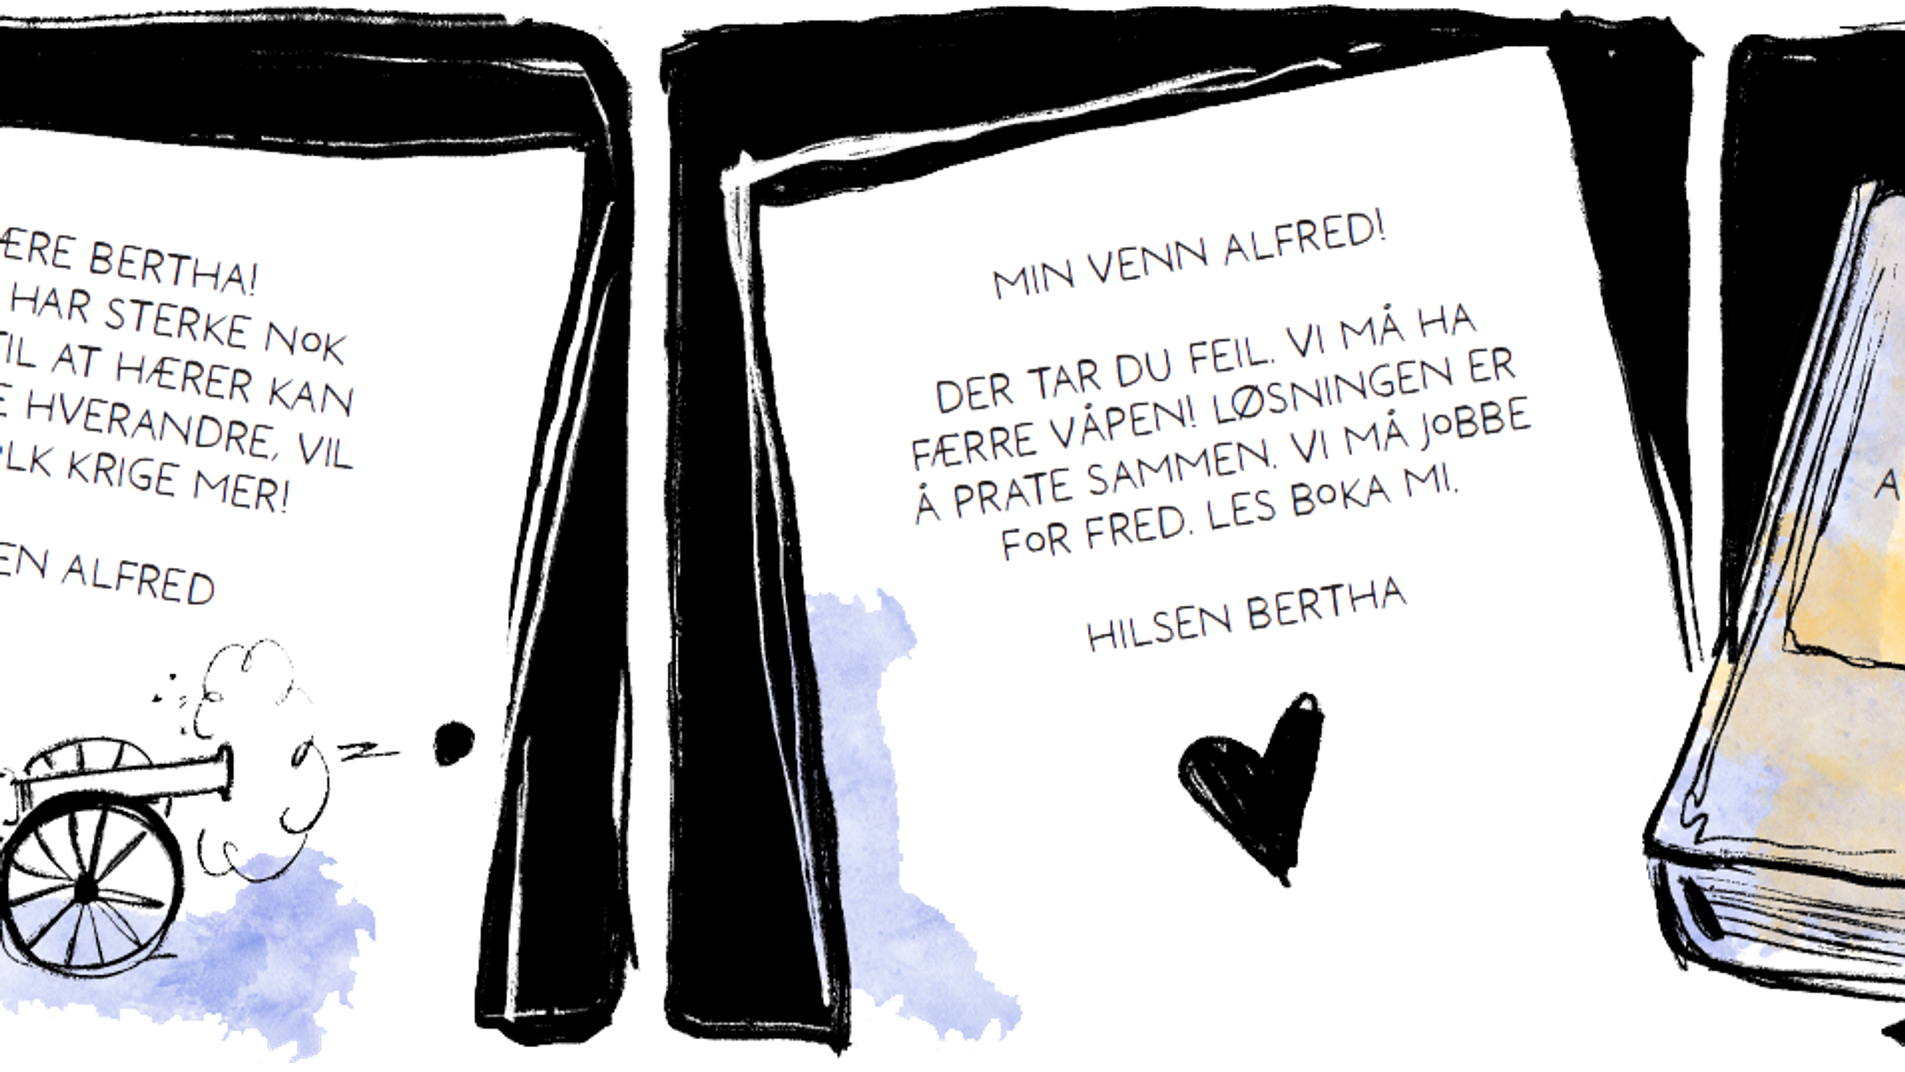 ÆRE BERTHA!
HAR STERKE NOK
TIL AT HÆRER KAN
E HVERANDRE, VIL
OLK KRIGE MER!
EN ALFRED
MIN VENN ALFRED!
DER TAR DU FEIL. VI MÅ HA
FÆRRE VÅPEN! LØSNINGEN ER
Å PRATE SAMMEN. VI MÅ JOBBE
FOR FRED. LES BOKA MI.
HILSEN BERTHA
A